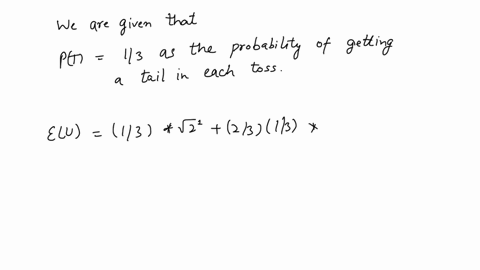 We are given that
P(T) = 1/3 as the probability of getting
a tail in each toss.
E(U) = (1/3) * √2² + (2/3)(1/3) *